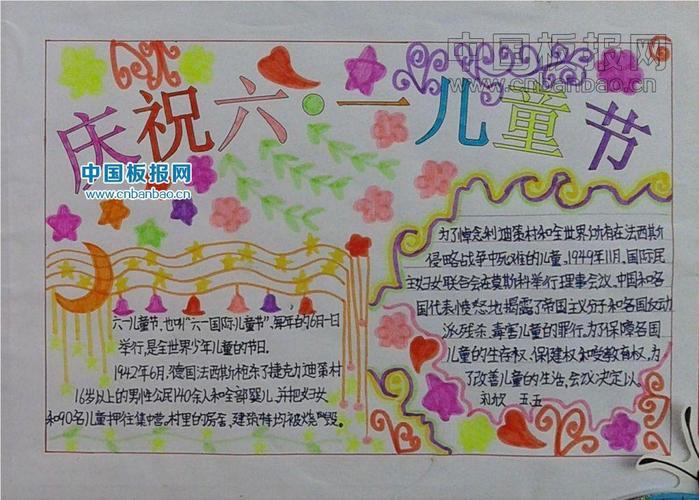 中国板报网
www.cnbanbao.cn
庆祝六·一儿童节
中国板报网
www.cnbanbao.cn
六一儿童节,也叫“六一国际儿童节”,每年的6月1日
举行,是全世界少年儿童的节日。
1942年6月,德国法西斯枪杀了捷克力迪策村
16岁以上的男性公民140余人和全部婴儿,并把妇女
和90名儿童押往集中营。村里的房舍、建筑物均被烧毁。
为了悼念利迪策村和全世界所有在法西斯
侵略战争中死难的儿童,1949年11月,国际民
主妇女联合会在莫斯科举行理事会议,中国和各
国代表愤怒地揭露了帝国主义分子和各国反动
派残杀、毒害儿童的罪行。为了保障各国
儿童的生存权、保健权和受教育权,为
了改善儿童的生活,会议决定以。